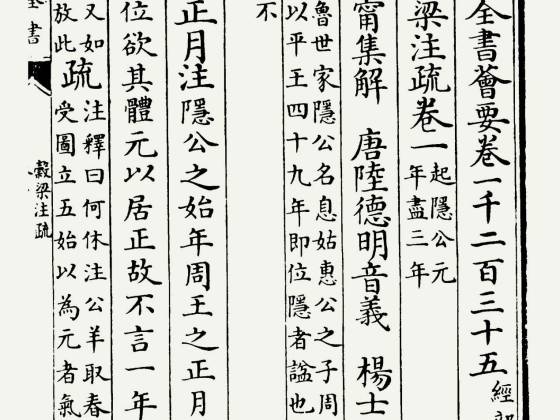 全書薈要卷一千二百三十五 經部
梁注疏卷一 起隱公元年盡三年
甯集解 唐陸德明音義 楊士
魯世家隱公名息姑惠公之子周
以平王四十九年即位隱者諡也
不
正月注隱公之始年周王之正月
位欲其體元以居正故不言一年
又如疏注釋曰何休注公羊取春
放此受圖立五始以為元者氣
全書
穀梁注疏